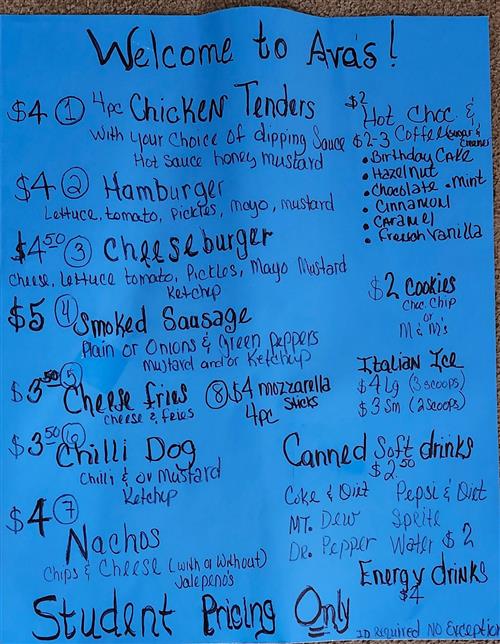 Welcome to Ava's!
$4 ① 4pc Chicken Tenders
With your Choice of dipping Sauce
Hot Sauce honey Mustard
$4 ② Hamburger
Lettuce, tomato, Pickles, mayo, mustard
$4.50 ③ Cheeseburger
Cheese, Lettuce tomato, Pickles, Mayo Mustard
Ketchup
$5 ④ Smoked Sausage
Plain or Onions & Green Peppers
Mustard and/or Ketchup
$3.50 ⑤ Cheese fries
cheese & fries
⑧ $4 mozzarella
4pc Sticks
$3.50 ⑥ Chilli Dog
Chilli & or Mustard
Ketchup
$4 ⑦
Nachos
Chips & Cheese (with or without)
Jalepeno's
$2 Hot Choc. &
$2-3 Coffee Sugar &
Creamer
• Birthday Cake
• Hazelnut
• Chocolate • Mint
• Cinnamon
• Caramel
• French Vanilla
$2 Cookies
Choc. Chip
or
M & M's
Italian Ice
$4 Lg (3 scoops)
$3 Sm (2 scoops)
Canned Soft drinks
$2.50
Coke & Diet Pepsi & Diet
MT. Dew Sprite
Dr. Pepper Water $2
Energy drinks
$4
Student Pricing Only
ID Required NO Exceptio